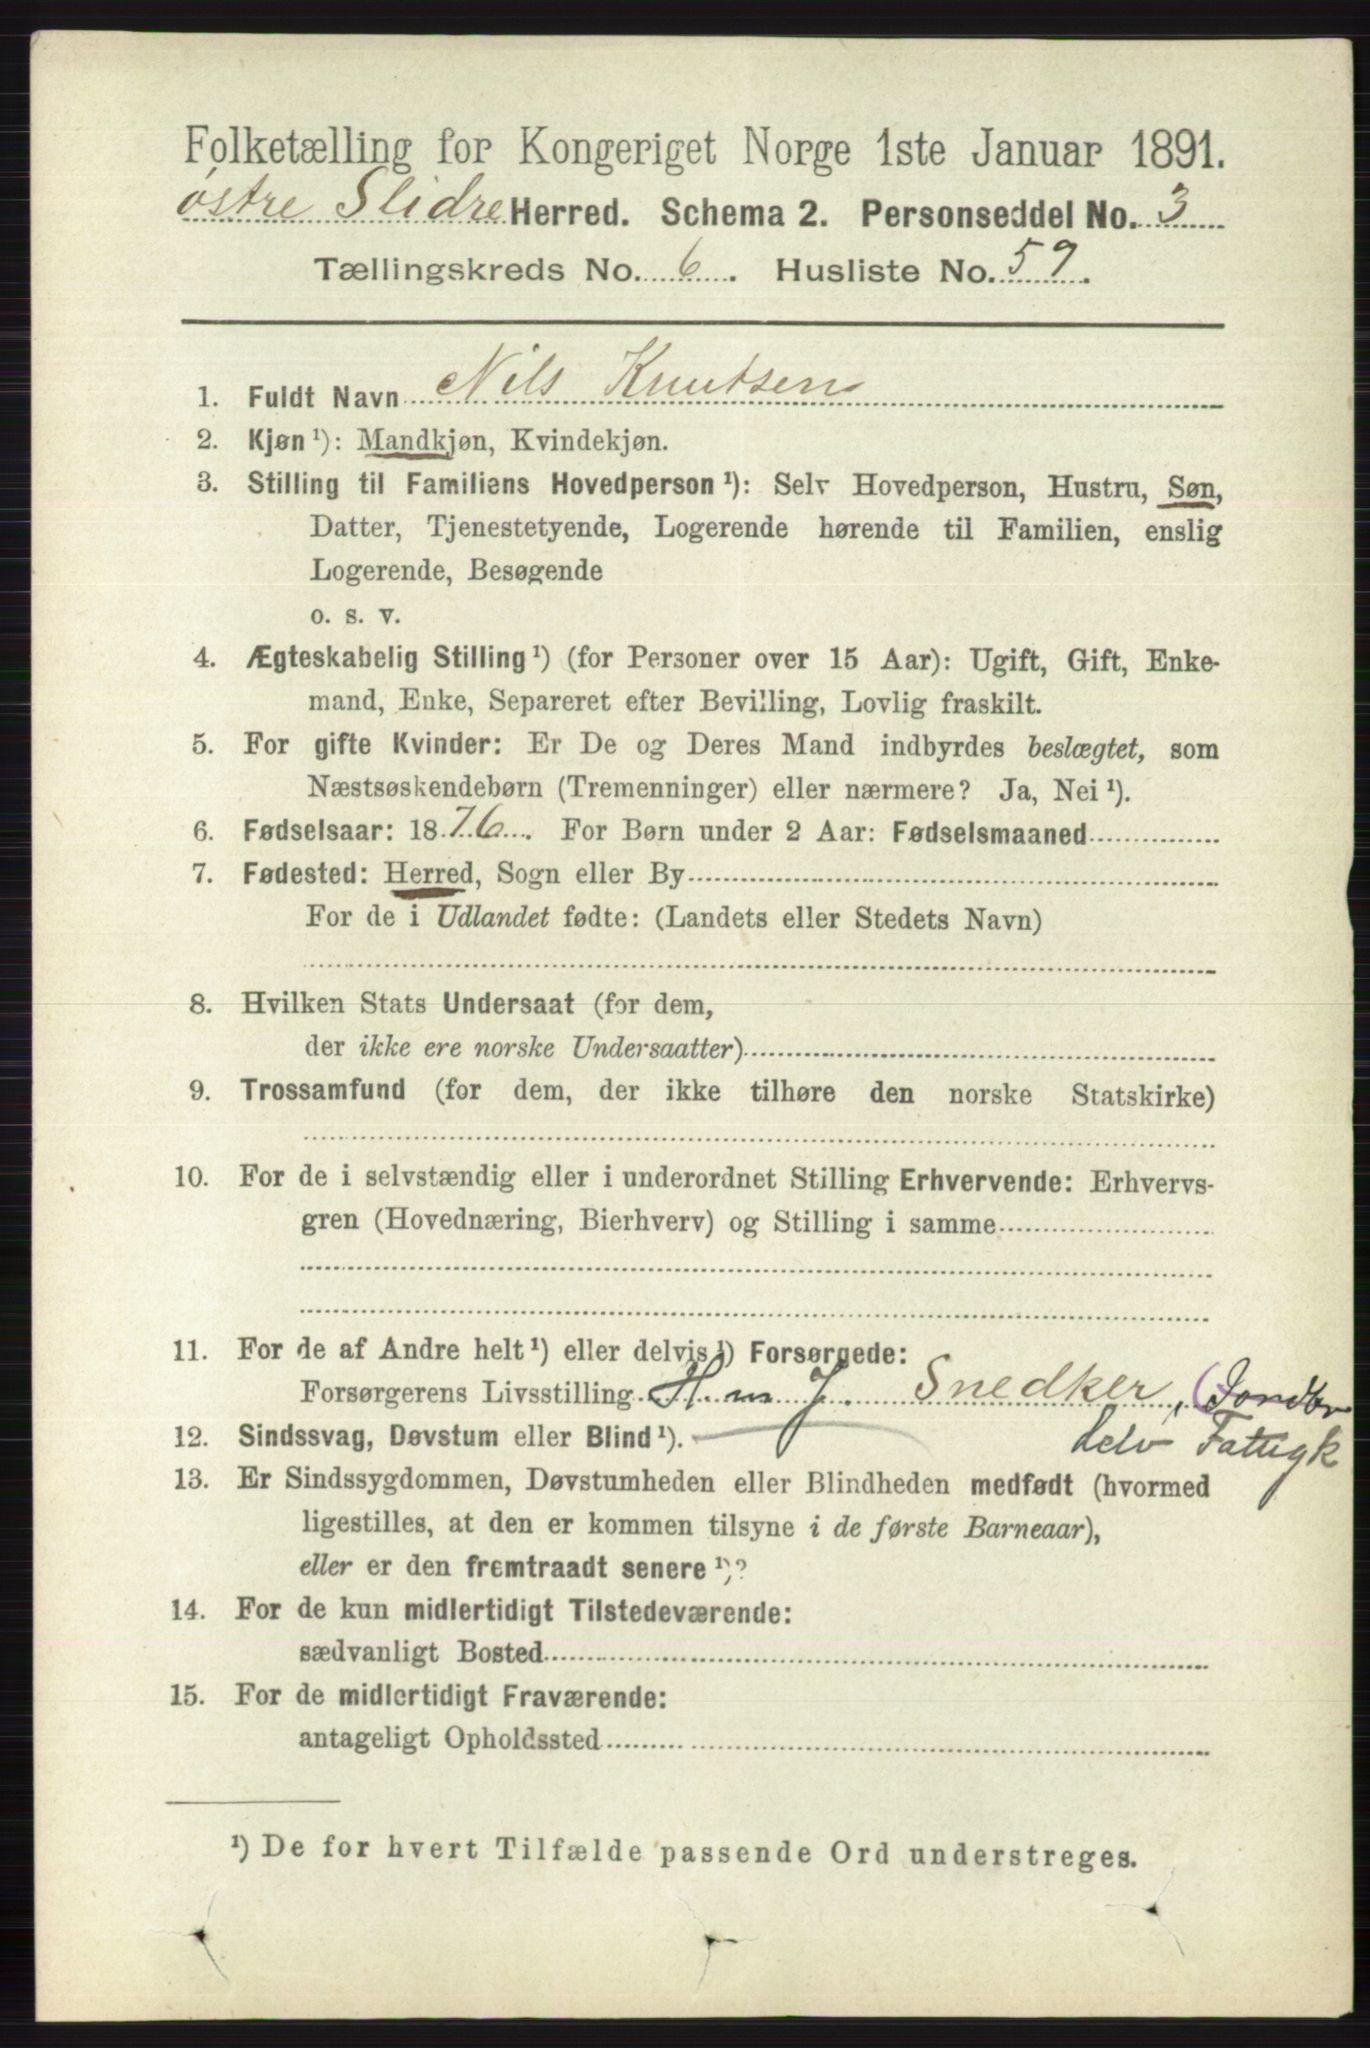 Folketælling for Kongeriget Norge 1ste Januar 1891.
østre Slidre Herred. Schema 2. Personseddel No. 3
Tællingskreds No. 6. Husliste No. 59.
1. Fuldt Navn Nils Knutsen
2. Kjøn ¹): Mandkjøn, Kvindekjøn.
3. Stilling til Familiens Hovedperson ¹): Selv Hovedperson, Hustru, Søn,
Datter, Tjenestetyende, Logerende hørende til Familien, enslig
Logerende, Besøgende
o. s. v.
4. Ægteskabelig Stilling ¹) (for Personer over 15 Aar): Ugift, Gift, Enke-
mand, Enke, Separeret efter Bevilling, Lovlig fraskilt.
5. For gifte Kvinder: Er De og Deres Mand indbyrdes beslægtet, som
Næstsøskendebørn (Tremenninger) eller nærmere? Ja, Nei ¹).
6. Fødselsaar: 1876. For Børn under 2 Aar: Fødselsmaaned
7. Fødested: Herred, Sogn eller By
For de i Udlandet fødte: (Landets eller Stedets Navn)
8. Hvilken Stats Undersaat (for dem,
der ikke ere norske Undersaatter)
9. Trossamfund (for dem, der ikke tilhøre den norske Statskirke)
10. For de i selvstændig eller i underordnet Stilling Erhvervende: Erhvervs-
gren (Hovednæring, Bierhverv) og Stilling i samme
11. For de af Andre helt ¹) eller delvis ¹) Forsørgede:
Forsørgerens Livsstilling H. m J. Snedker, (Jordbr
12. Sindssvag, Døvstum eller Blind ¹). Selv Fattigk
13. Er Sindssygdommen, Døvstumheden eller Blindheden medfødt (hvormed
ligestilles, at den er kommen tilsyne i de første Barneaar),
eller er den fremtraadt senere ¹)?
14. For de kun midlertidigt Tilstedeværende:
sædvanligt Bosted
15. For de midlertidigt Fraværende:
antageligt Opholdssted
¹) De for hvert Tilfælde passende Ord understreges.